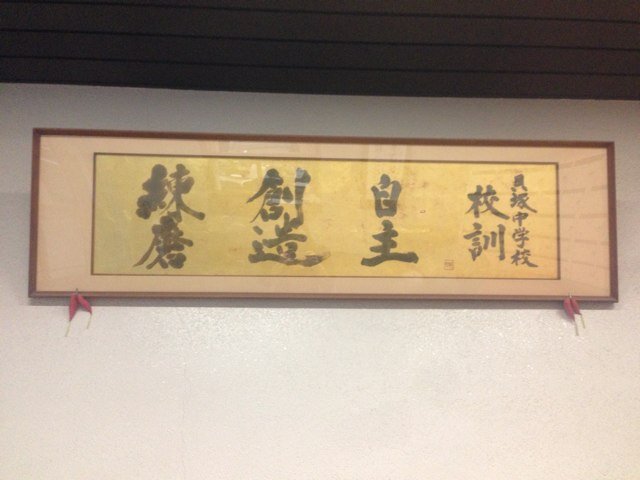 貝塚中学校
校訓
自主
創造
練磨